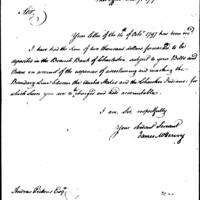 Sir,
Your letter of the 14th of Octr 1797 has been recd
I have had the sum of two thousand dollars forwarded to be
deposited in the Branch Bank of Charleston, subject to your Bills and
Orders on account of the expense of ascertaining and marking the
Boundary Line between the United States and the Cherokee Indians: for
which sum you are charged and held accountable.
I am, Sir, respectfully
Your Obedient Servant
James McHenry
Andrew Pickens Esqr.